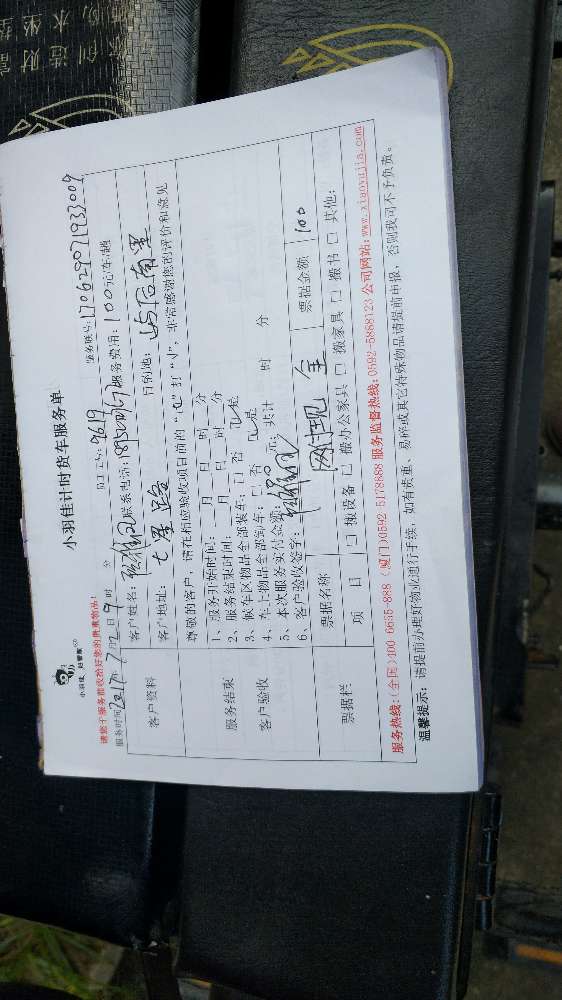 小羽佳计时货车服务单
请您于服务前收拾好您的贵重物品！
服务账号：170629071933009
服务时间 2017年7月2日9时 分
员工工号：9619
客户资料
客户姓名：
联系电话：
服务费用：100元/车/趟
客户地址：七星路
目的地：
服务结束
客户验收
尊敬的客户，请在相应验收项目前的“□”打“√”，非常感谢您的评价和意见
1、服务开始时间： 月 日 时 分
2、服务结束时间： 月 日 时 分
3、候车区物品全部装车：□ 否 □ 是
4、车上物品全部卸车：□ 否 □ 是
5、本次服务实付金额：100 元；共计 时 分
6、客户验收签字：
票据栏
票据名称
现金
票据金额
100
项 目
□ 搬设备 □ 搬办公家具 □ 搬家具 □ 搬书 □ 其他：
服务热线：(全国)400-6635-888 (厦门)0592-5178888 服务监督热线：0592-5888123 公司网站：www.xiaoyujia.com
温馨提示：请提前办理好物业通行手续，如有贵重、易碎或其它特殊物品请提前申报，否则我司不予负责。